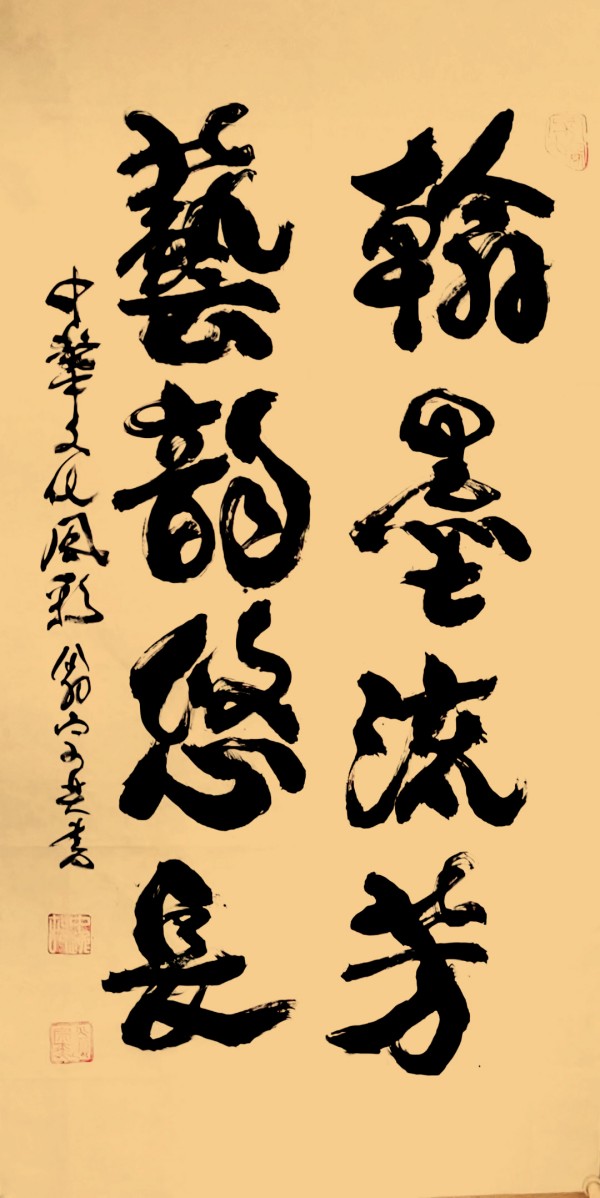 翰墨流芳
藝韻悠長
中華文化風彩 翁
書